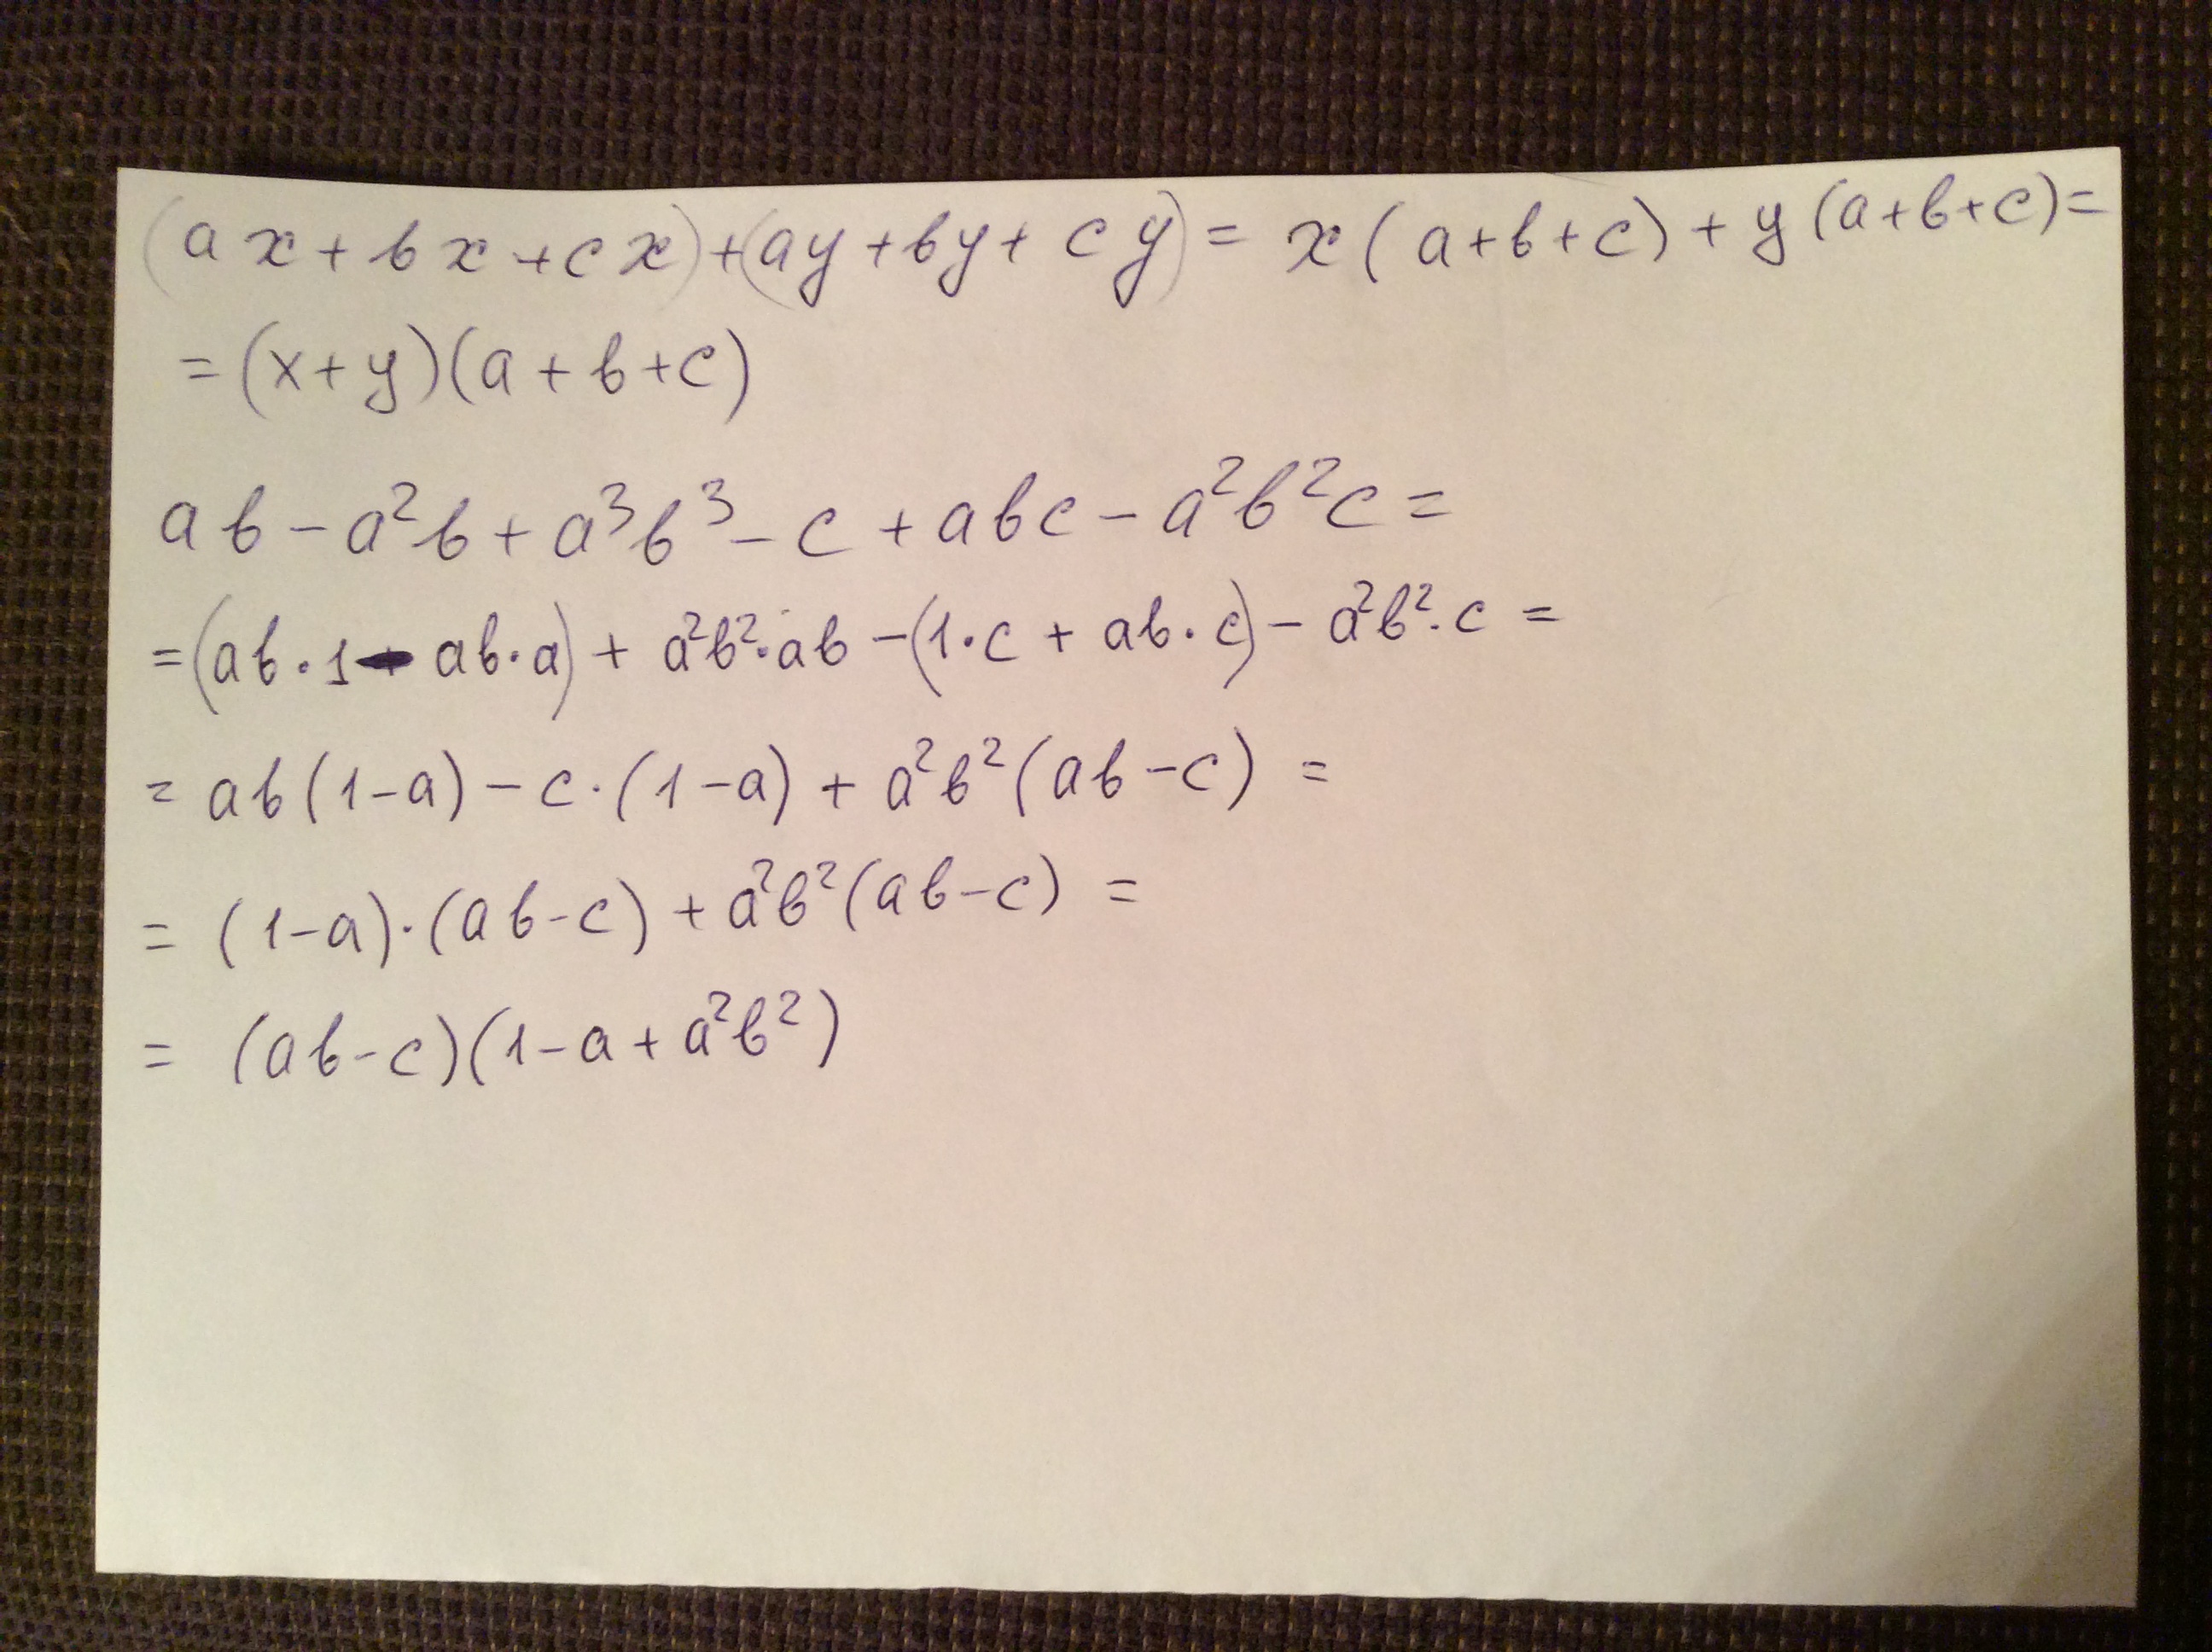 (ax + bx + cx) + (ay + by + cy) = x(a+b+c) + y(a+b+c) =
= (x+y)(a+b+c)
ab - a²b + a³b³ - c + abc - a²b²c =
= (ab·1 - ab·a) + a²b²·ab - (1·c + ab·c) - a²b²·c =
= ab(1-a) - c·(1-a) + a²b²(ab-c) =
= (1-a)·(ab-c) + a²b²(ab-c) =
= (ab-c)(1-a+a²b²)